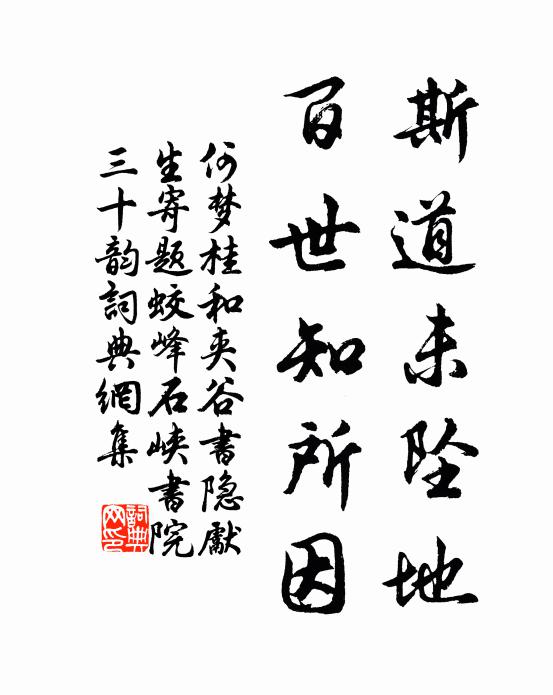 斯道未坠地
百世知所因
何梦桂和夹谷书隐献
生寄题蛟峰石峡书院
三十韵词典网集
词典网印